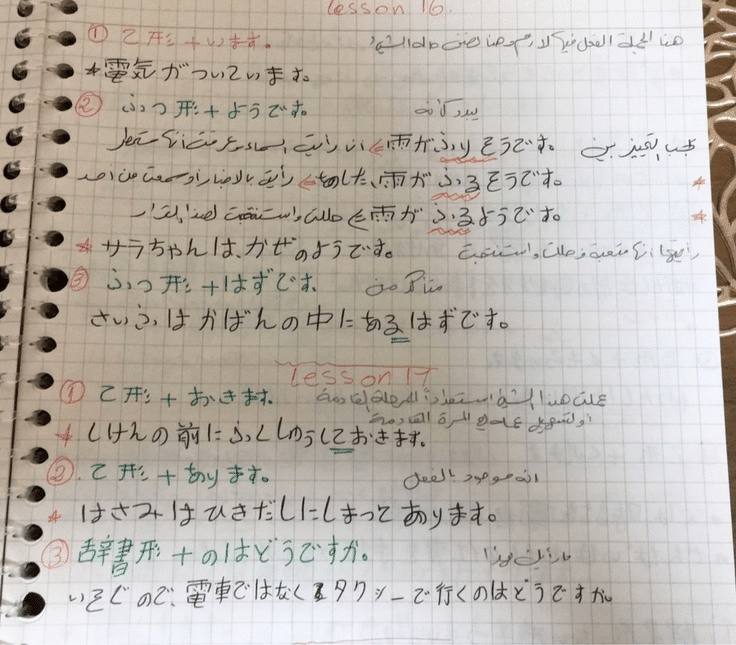 Lesson 16
① て形 + います。 هذا الجملة الفعل فيها لازم وهنا نصف حالة الشيء
* 電気がついています。
② ふつ形 + ようです。 يبدو كأنه
雨がふりそうです。 ⇐ انا رأيت السماء وعرفت انها ستمطر يجب التمييز بين
あした、雨がふるそうです。 ⇐ رأيت بالاخبار او سمعت من احد *
雨がふるようです。 ⇐ حللت واستنتجت لهذا القرار *
* サラちゃんは、かぜのようです。 رأيتها انها متعبة وحللت واستنتجت
③ ふつ形 + はずです。 متأكد من
さいふはかばんの中にあるはずです。
Lesson 17
① て形 + おきます。 عملت هذا الشيء استعداداً للمرحلة القادمة
او لتسهيل عمله في المرة القادمة
* しけんの前にふくしゅうしておきます。
② て形 + あります。 انه موجود بالفعل
* はさみはひきだしにしまってあります。
③ 辞書形 + のはどうですか。 ما رأيك بهذا
いそぐので、電車ではなくタクシーで行くのはどうですか。